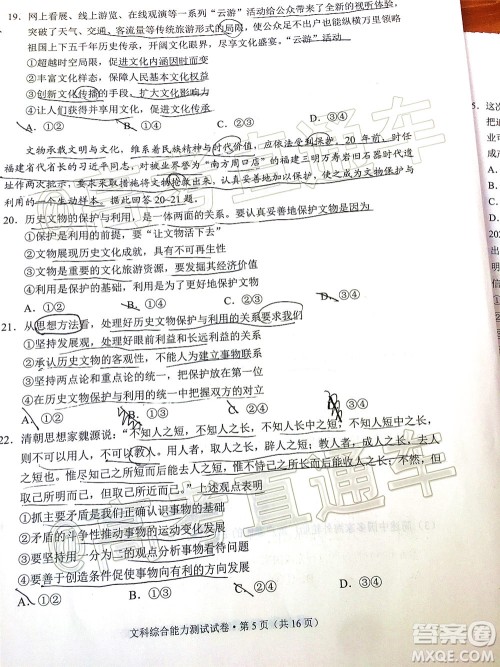 19. 网上看展、线上游览、在线观演等一系列“云游”活动给公众带来了全新的视听体验，
突破了天气、交通、客流量等传统旅游形式的局限，使公众足不出户也能纵横万里领略
祖国上下五千年历史传承、开阔文化视野。“云游”活动
①超越时空局限，促进文化内涵因时而变
②丰富文化样态，保障人民基本文化权益
③创新文化传播的手段，扩大文化影响力
④让人们获得并享用文化，促进文化
A．①② B．①③ C．②④ D．③④
文物承载文明与文化，维系着民族精神与时代价值，应依法受到保护。20 年前，时任
福建省代省长的习近平同志，对被业界誉为“南方周口店”的福建三明万寿岩旧石器时代遗
址作两次批示，从而使文物抢救了下来，并加以保护，使文物资源活起来，成为保护利用
的一个生动样本。据此回答 20~21题。
20. 历史文物的保护与利用，是一体两面的关系。要认真妥善地保护文物是因为
①保护是利用的前提，要“让文物活下去”
②文物展现历史文化成就，具有不可再生性
③文物是重要的文化旅游资源，要发掘其经济价值
④利用是保护的基础，是一切保护的目的
A．①② B．①③ C．②④ D．③④
21. 从思想方法看，处理好历史文物保护与利用的关系要求我们
①坚持发展观，处理好眼前利益和长远利益的关系
②承认历史文物的客观性，不能人为建立事物联系
③坚持两点论和重点论的统一，把保护放在第一位
④在保护与利用的统一中把握双方的对立
A．①② B．①③ C．②④ D．③④
22. 清朝思想家魏源说：“不知人之短，不知人之长，不知人长中之短，不知人短中之长，
则不可以用人，不可以教人。用人者，取人之长，辟人之短；教人者，成人之长，去人
之短也。惟尽知己之所短而后能去人之短，惟不恃己之所长而后能收人之长；不然，但
取己所明而已，但取己所近而已。”上述观点表明
①抓主要矛盾是我们正确认识事物的基础
②矛盾的斗争性推动事物的运动变化发展
③要坚持用一分为二的观点分析事物看待问题
④要善于创造条件促使事物向好的方面发展
A．①② B．①③ C．②④ D．③④
文科综合能力测试试卷·第 5 页（共 16 页）
@高考直通车
@高考直通车
答案圈
MXQE.COM